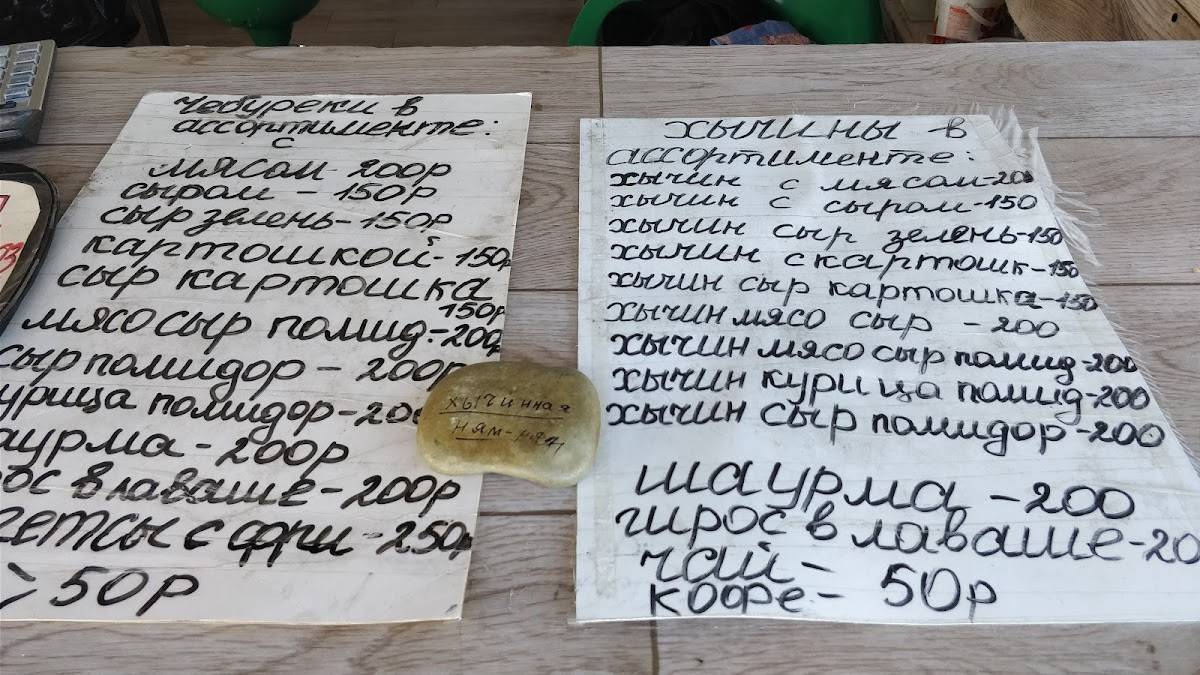 чебуреки в
ассортименте:
с
мясом 200р
сыром - 150р
сыр зелень-150р
картошкой-150р
сыр картошка
150р
мясо сыр помид-200р
сыр помидор - 200р
урица помидор-200
аурма-200р
ос в лаваше-200р
гетсы с фри-250р
50р
хычинная
ням-ням
хычины в
ассортименте:
хычин с мясом-200
хычин с сыром-150
хычин сыр зелень-150
хычин с картошк-150
хычин сыр картошка-150
хычин мясо сыр - 200
хычин мясо сыр помид-200
хычин курица помид-200
хычин сыр помидор-200
шаурма - 200
гирос в лаваше-20
чай-
кофе- 50р